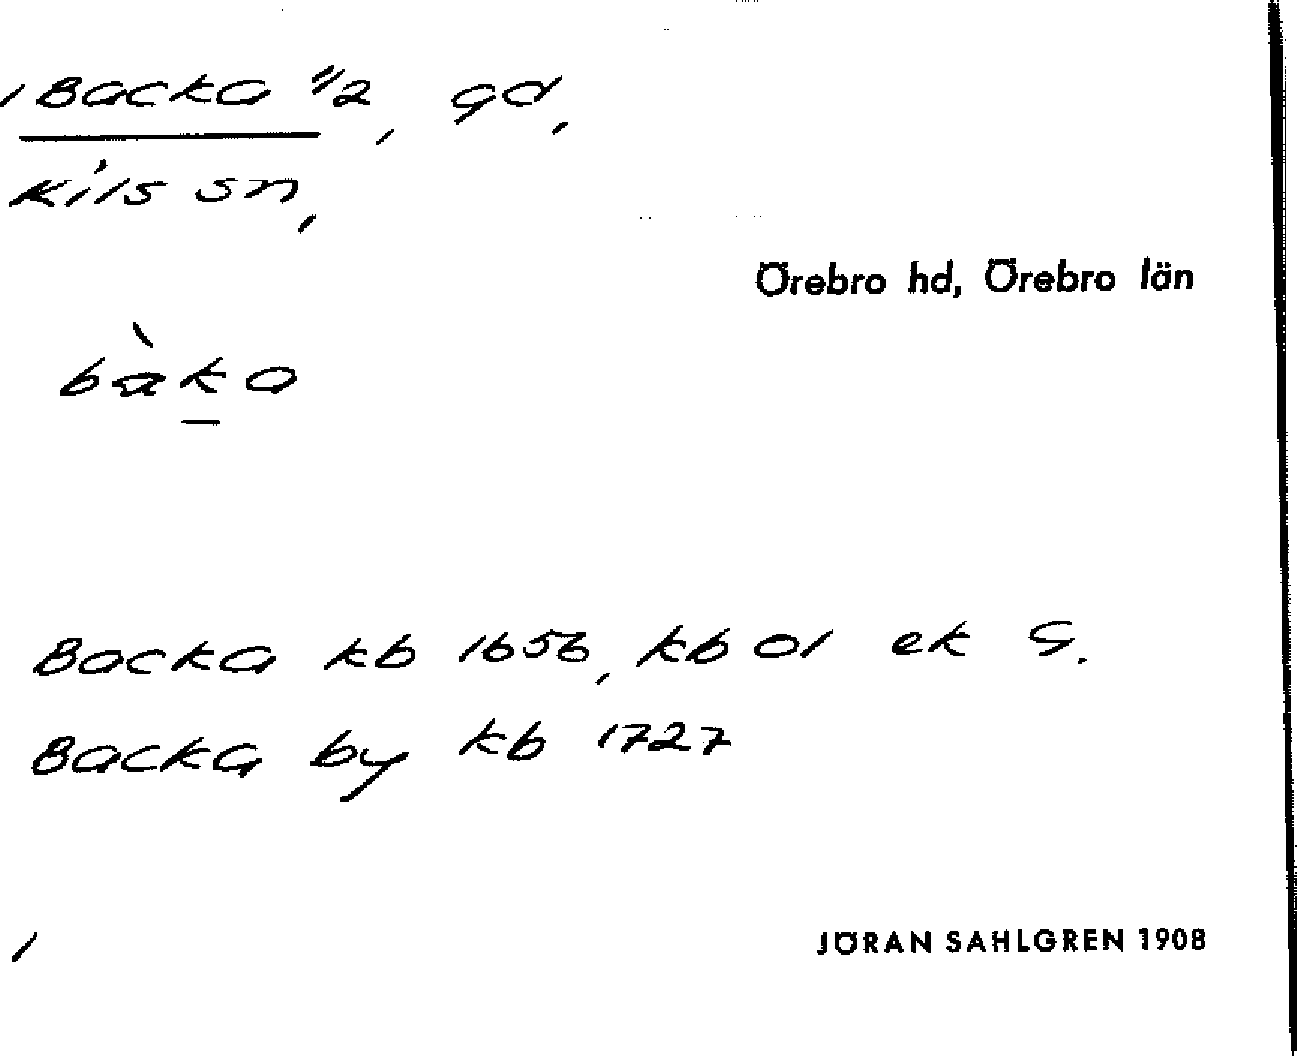 Backa 1/2, gd,
Kils sn,
Örebro hd, Örebro län
bàka
Backa kb 1656, kb 01 ek G.
Backa by kb 1727
JÖRAN SAHLGREN 1908